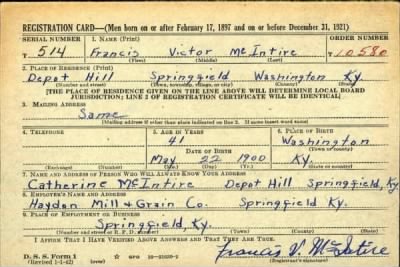 REGISTRATION CARD—(Men born on or after February 17, 1897 and on or before December 31, 1921)
SERIAL NUMBER 1. NAME (Print) ORDER NUMBER
T 514 Francis Victor McIntire T 10580
(First) (Middle) (Last)
2. PLACE OF RESIDENCE (Print)
Depot Hill Springfield Washington Ky.
(Number and street) (Town, township, village, or city) (County) (State)
[THE PLACE OF RESIDENCE GIVEN ON THE LINE ABOVE WILL DETERMINE LOCAL BOARD
JURISDICTION; LINE 2 OF REGISTRATION CERTIFICATE WILL BE IDENTICAL]
3. MAILING ADDRESS
Same
[Mailing address if other than place indicated on line 2. If same insert word same]
4. TELEPHONE 5. AGE IN YEARS 6. PLACE OF BIRTH
41 Washington
DATE OF BIRTH (Town or county)
May 22 1900 Ky.
(Exchange) (Number) (Mo.) (Day) (Yr.) (State or country)
7. NAME AND ADDRESS OF PERSON WHO WILL ALWAYS KNOW YOUR ADDRESS
Catherine McIntire Depot Hill Springfield, Ky.
8. EMPLOYER'S NAME AND ADDRESS
Haydon Mill & Grain Co. Springfield Ky.
9. PLACE OF EMPLOYMENT OR BUSINESS
Springfield, Ky.
(Number and street or R. F. D. number) (Town) (County) (State)
I AFFIRM THAT I HAVE VERIFIED ABOVE ANSWERS AND THAT THEY ARE TRUE.
D. S. S. Form 1
(Revised 1-1-42) GPO
Francis V. McIntire